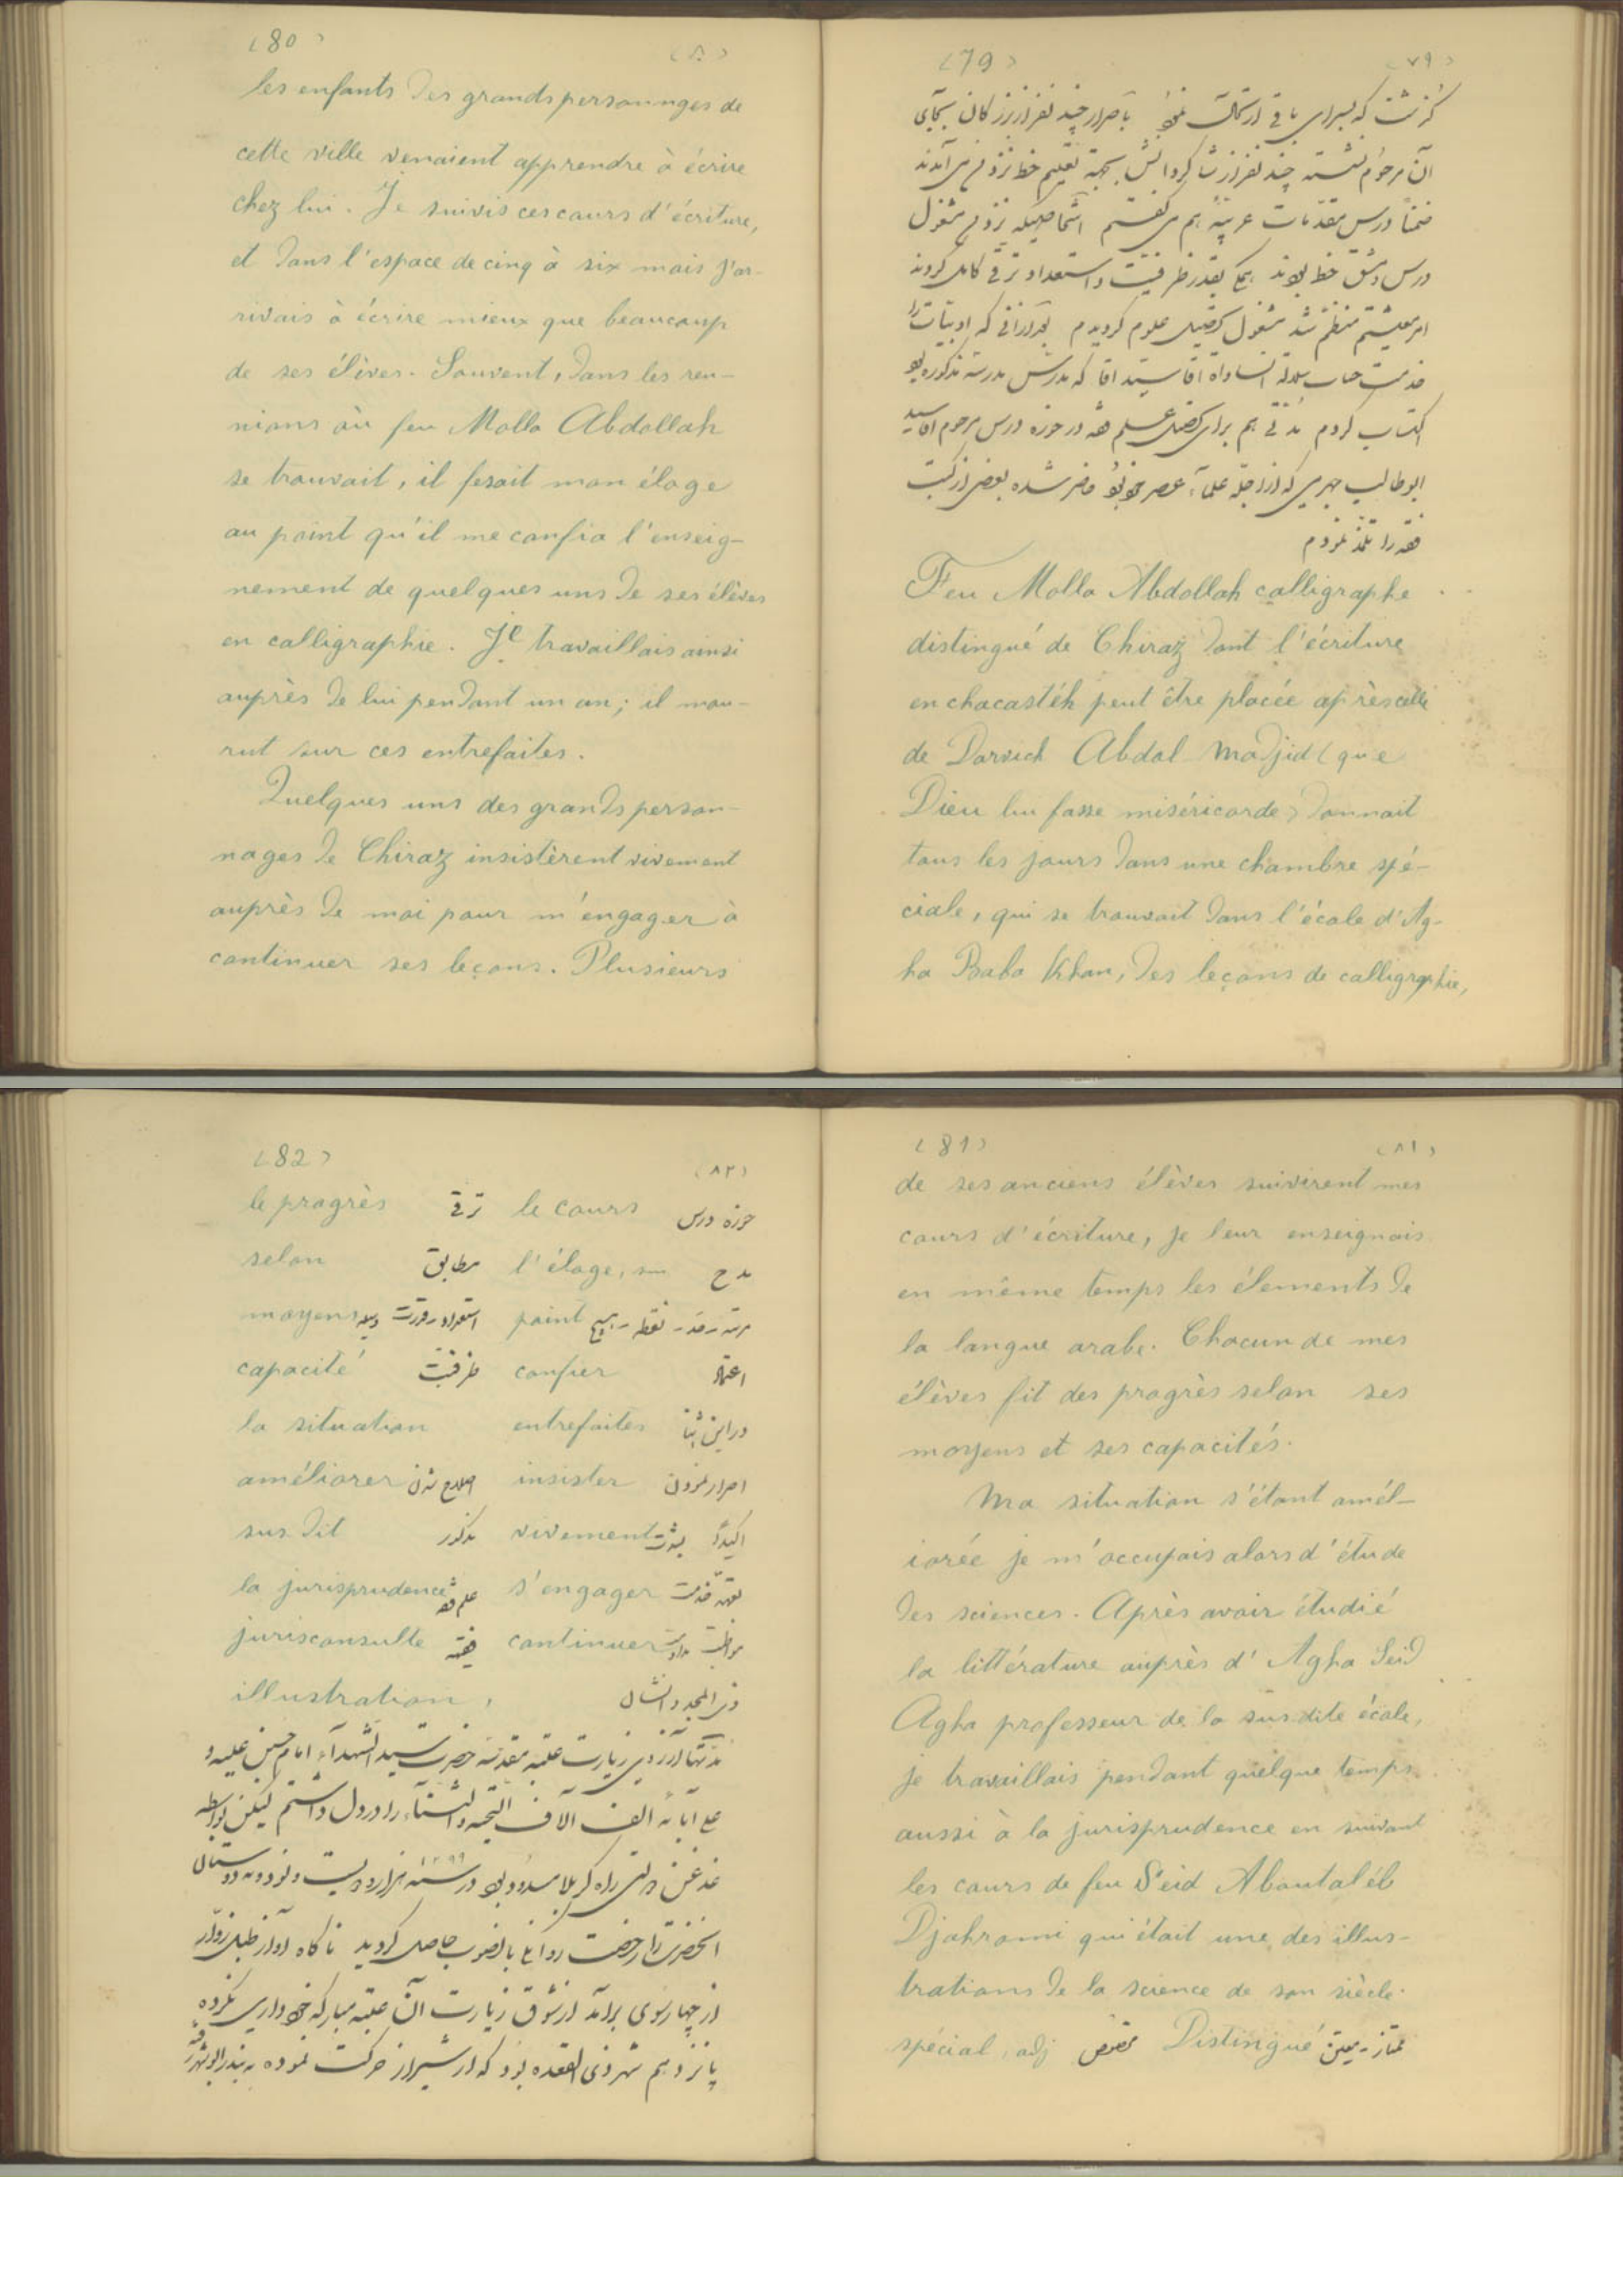 (79) (٧٩)
گذشت که بسرای باقی ارتحال نمود باصرار چند نفر از بزرگان بجای
آن مرحوم نشسته چند نفر از شاگردانش بجهة تعلیم خط نزد من می آمدند
ضمناً درس مقدمات عربیه هم میگفتم اشخاصیکه نزد من مشغول
درس و مشق خط بودند بقدر ظرفیت و استعداد ترقی کامل کردند
امر معیشتم منظم شد مشغول تحصیل علوم گردیدم که ادبیات را
خدمت جناب سلالة السادات آقا سید آقا که مدرس مدرسه مذکوره بود
اکتساب کردم مدتی هم برای تحصیل علم فقه در حوزه درس مرحوم آقا سید
ابوطالب جهرمی که از اجله علماء عصر خود بود حاضر شده بعضی از کتب
فقه را تلمذ نمودم
Feu Molla Abdollah calligraphe
distingué de Chiraz dont l'écriture
en chacastéh peut être placée après celle
de Darvich Abdol Madjid (que
Dieu lui fasse miséricorde) donnait
tous les jours dans une chambre spé-
ciale, qui se trouvait dans l'école d'Ag-
ha Baba Khan, des leçons de calligraphie,
(80) (٨٠)
les enfants des grands personnages de
cette ville venaient apprendre à écrire
chez lui. Je suivis ces cours d'écriture,
et dans l'espace de cinq à six mois j'ar-
rivais à écrire mieux que beaucoup
de ses élèves. Souvent, dans les reu-
nions où feu Molla Abdollah
se trouvait, il fesait mon éloge
au point qu'il me confia l'enseig-
nement de quelques uns de ses élèves
en calligraphie. Je travaillais ainsi
auprès de lui pendant un an; il mou-
rut sur ces entrefaites.
Quelques uns des grands person-
nages de Chiraz insistèrent vivement
auprès de moi pour m'engager à
continuer ses leçons. Plusieurs
(81) (٨١)
de ses anciens élèves suivirent mes
cours d'écriture, je leur enseignais
en même temps les élements de
la langue arabe. Chacun de mes
élèves fit des progrès selon ses
moyens et ses capacités.
Ma situation s'étant amél-
iorée je m'occupais alors d'étude
des sciences. Après avoir étudié
la littérature auprès d'Agha Seid
Agha professeur de la susdite école,
je travaillais pendant quelque temps
aussi à la jurisprudence en suivant
les cours de feu Seid Aboutaléb
Djahromi qui était une des illus-
trations de la science de son siècle.
spécial, adj مخصوص Distingué ممتاز - معین
(82) (٨٢)
le progrès ترقی le cours حوزه درس
selon مطابق l'éloge, sm مدح
moyens استعداد - قدرت وسیله point مرتبه - قدر - نقطه - هیچ
capacité ظرفیت confier اعتماد
la situation entrefaites در این اثنا
améliorer اصلاح شدن insister اصرار نمودن
sus dit مذکور vivement اکیداً بشدت
la jurisprudence علم فقه s'engager تعهد خدمت
jurisconsulte فقیه continuer مواظبت مداومت
illustration, ذی المجد و الشان
مدتها آرزوی زیارت عتبه مقدسه حضرت سید الشهداء امام حسین علیه و
علی آبائه الف آلاف التحیة و الثناء را در دل داشتم لیکن بواسطه
غدغن دولتی راه کربلا مسدود بود در سنه ١٢٩٩ هزار و دویست و نود و نه دوستان
آنحضرت را رخصت روانگی بآنصوب حاصل گردید ناگاه آواز طبل زوار
از چهارسوی برآمد از شوق زیارت آن عتبه مبارکه خودداری نکرده
پانزدهم شهر ذی القعده بود که از شیراز حرکت نموده به بندر بوشهر